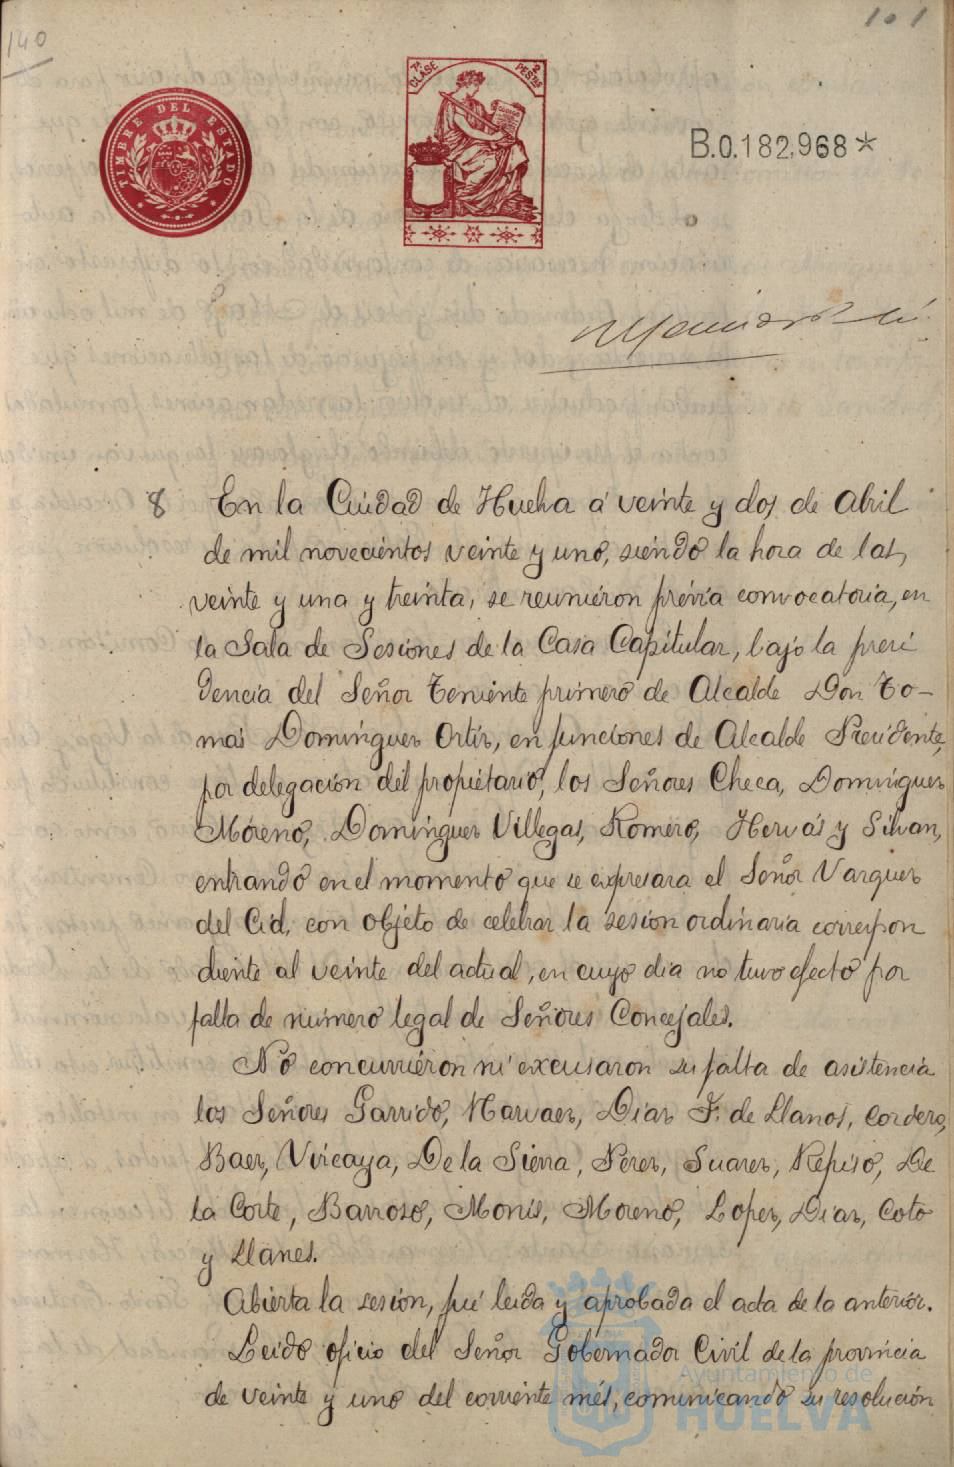 140
101
TIMBRE DEL ESTADO
7ª CLASE
2 PESTAS
B.0.182,968*
8 En la Ciudad de Huelva á veinte y dos de Abril
de mil novecientos veinte y uno, siendo la hora de las,
veinte y una y treinta, se reunieron prévia convocatoria, en
la Sala de Sesiones de la Casa Capitular, bajo la presi
dencia del Señor Teniente primero de Alcalde Don To-
más Domínguez Ortiz, en funciones de Alcalde Presidente,
por delegación del propietario, los Señores Checa, Domínguez
Moreno, Domínguez Villegas, Romero, Hervás y Silvan,
entrando en el momento que se expresara el Señor Vazquez
del Cid, con objeto de celebrar la sesion ordinaria correspon
diente al veinte del actual, en cuyo dia no tuvo efecto por
falta de número legal de Señores Concejales.
No concurrieron ni excusaron su falta de asistencia
los Señores Garrido, Narvaez, Diaz F. de Llanos, Cordero,
Baez, Vizcaya, De la Sierra, Perez, Suarez, Repiso, De
la Corte, Barroso, Monís, Moreno, Lopez, Diaz, Coto
y Llanes.
Abierta la sesión, fué leida y aprobada el acta de la anterior.
Leido oficio del Señor Gobernador Civil de la provincia
de veinte y uno del corriente més, comunicando su resolución
Ayuntamiento de
HUELVA